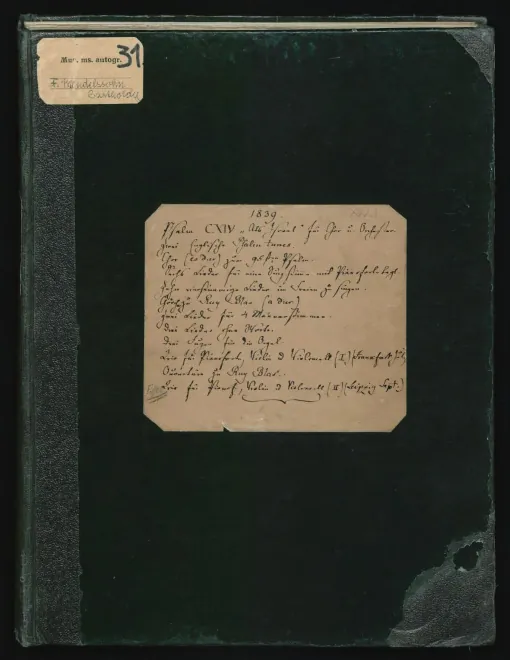 Mus. ms. autogr. 31
F. Mendelssohn
Bartholdy
1839.
Psalm CXIV „Als Israel" für Chor u. Orchester.
zwei Englische Psalm tunes.
Chor (Es dur) zum 95sten Psalm.
Sechs Lieder für eine Singstimme mit Pianoforte
Zehn vierstimmige Lieder im Freien zu singen.
zu Ruy Blas (a dur)
zwei Lieder für 4 Männerstimmen.
drei Lieder ohne Worte.
drei Fugen für die Orgel.
Trio für Pianoforte, Violin & Violoncell (I) (Frankfurt Juli)
Ouvertüre zu Ruy Blas.
Trio für Pianof., Violin & Violoncell (II) (Leipzig Sept.)